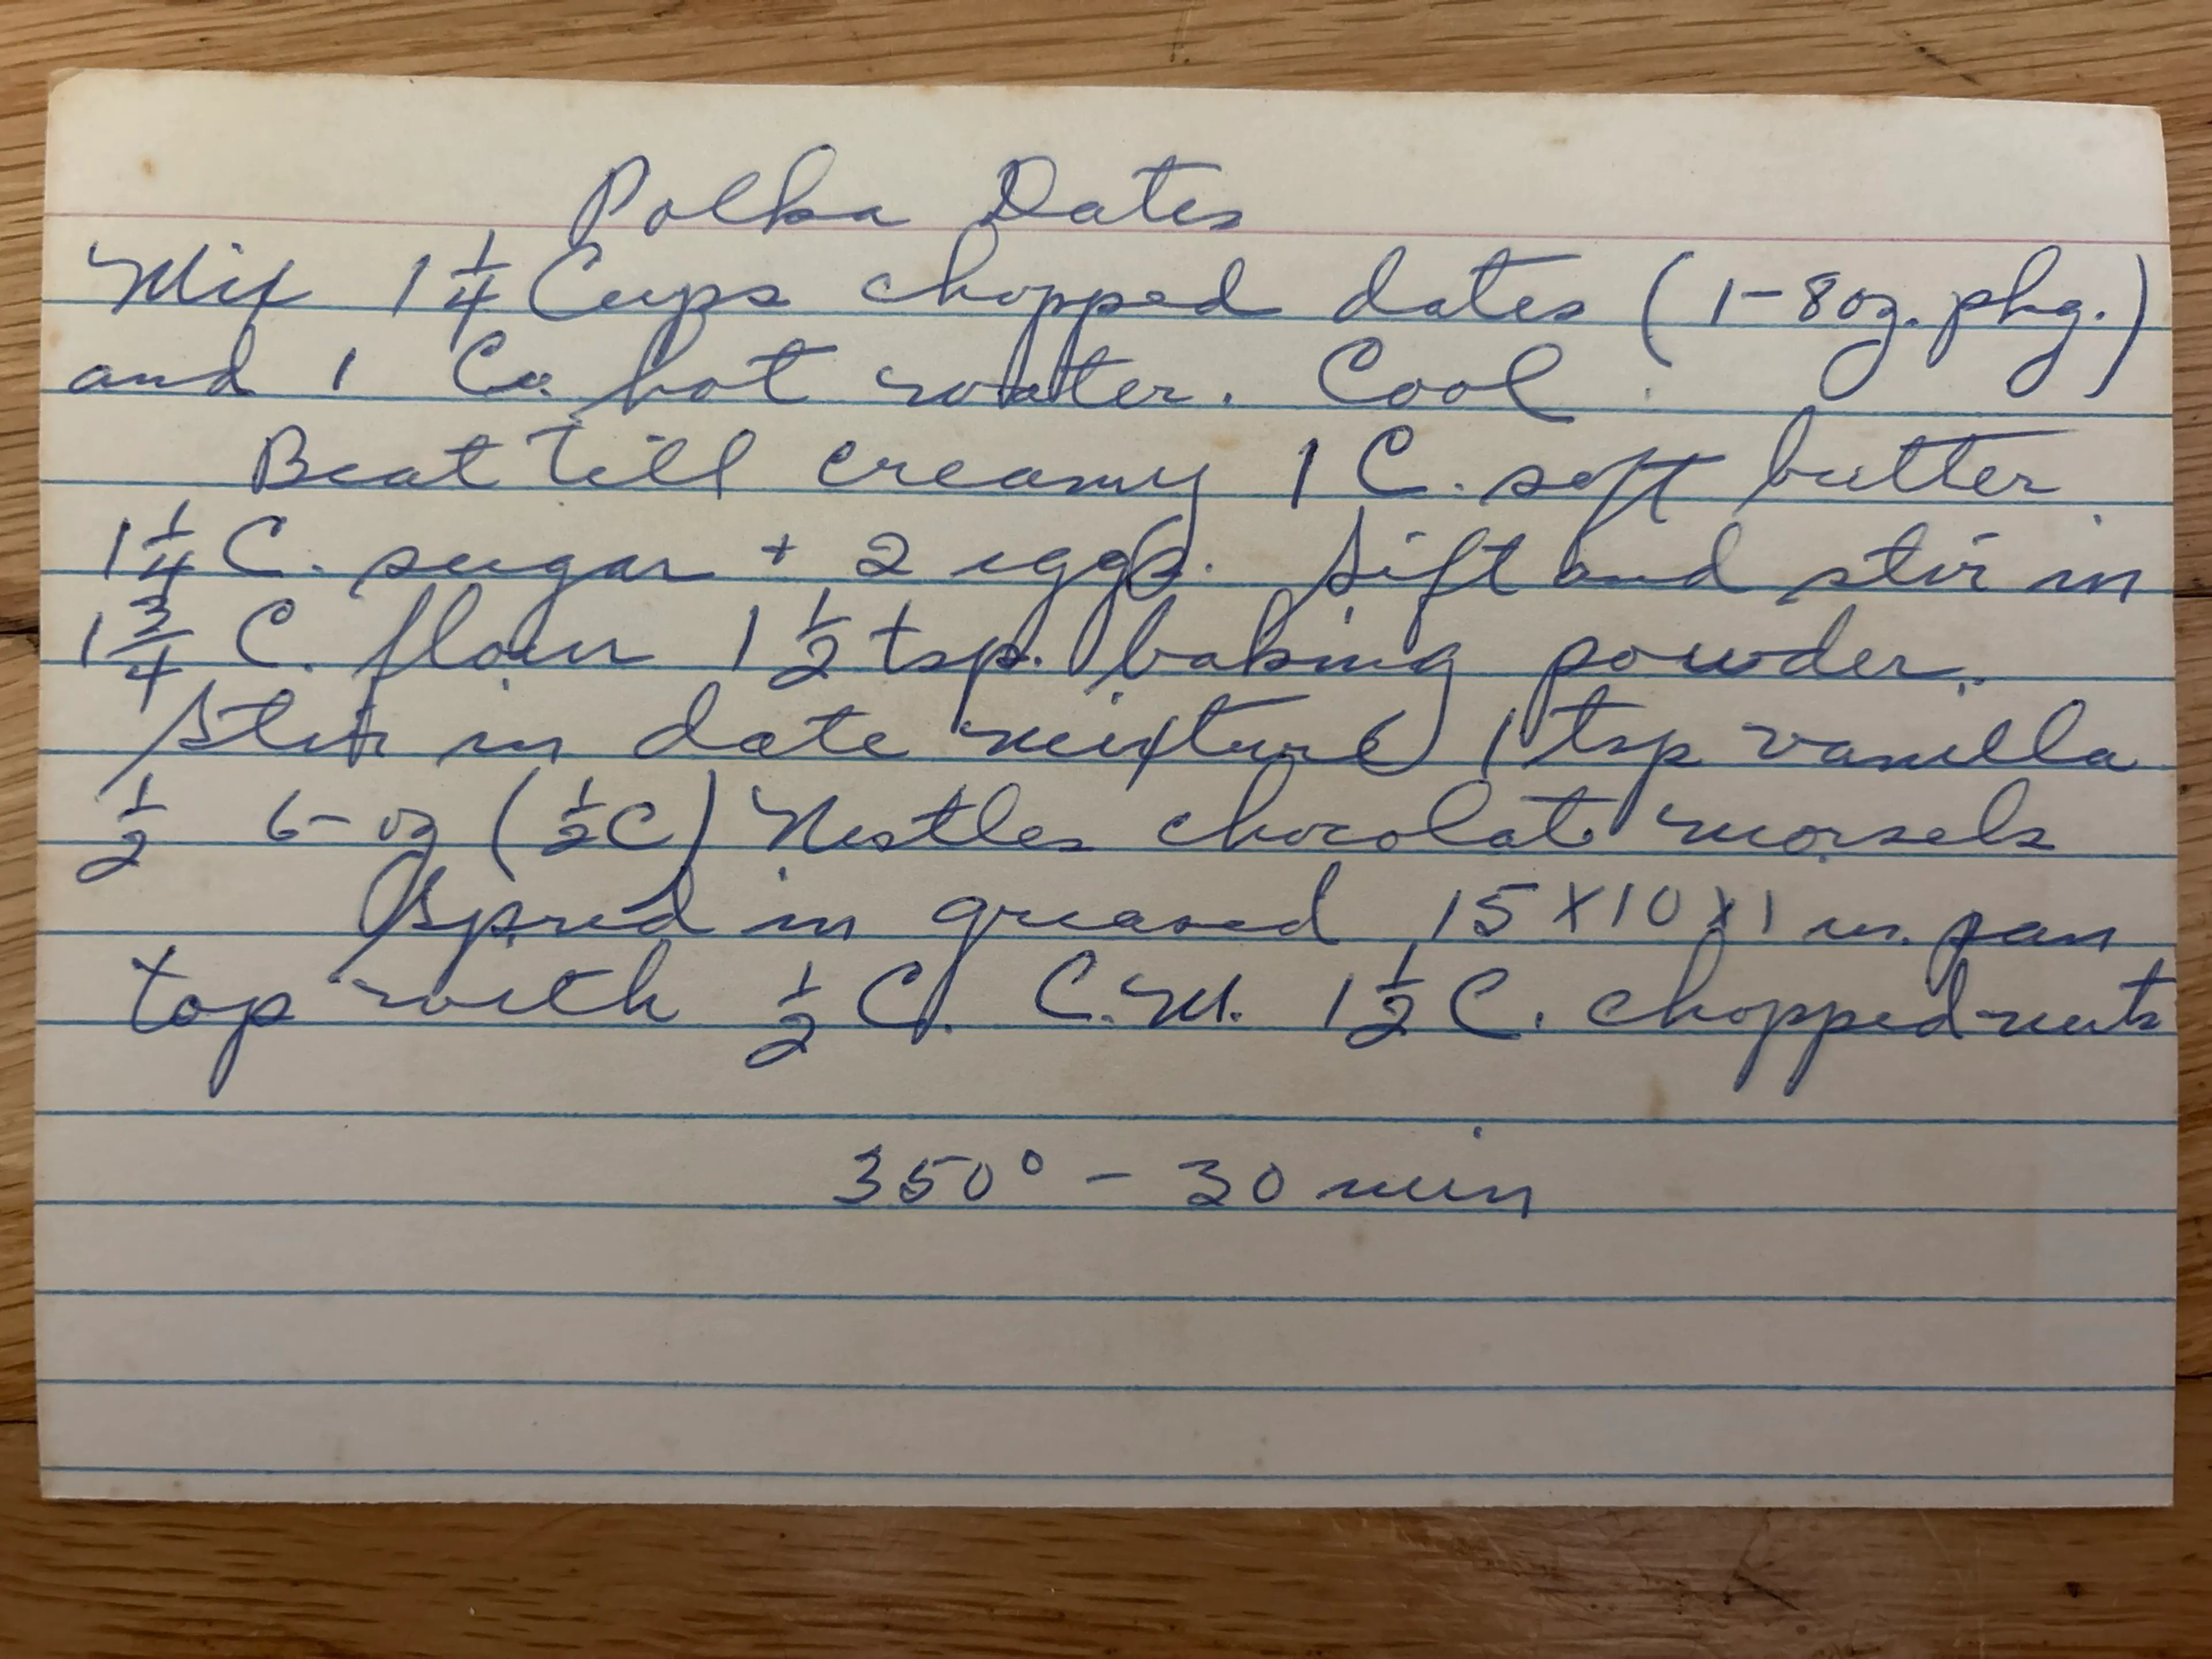 Polka Dates
Mix 1 1/4 Cups chopped dates (1-8oz. pkg.)
and 1 Cu. hot water. Cool
Beat till creamy 1 C. soft butter
1 1/4 C. sugar + 2 eggs. Sift and stir in
1 3/4 C. flour 1 1/2 tsp. baking powder.
Stir in date mixture 1 tsp vanilla
1/2 6-oz (1/2 C) Nestles chocolate morsels
Spred in greased 15 x 10 x 1 in. pan
top with 1/2 C. C.M. 1 1/2 C. chopped nuts
350° - 30 min